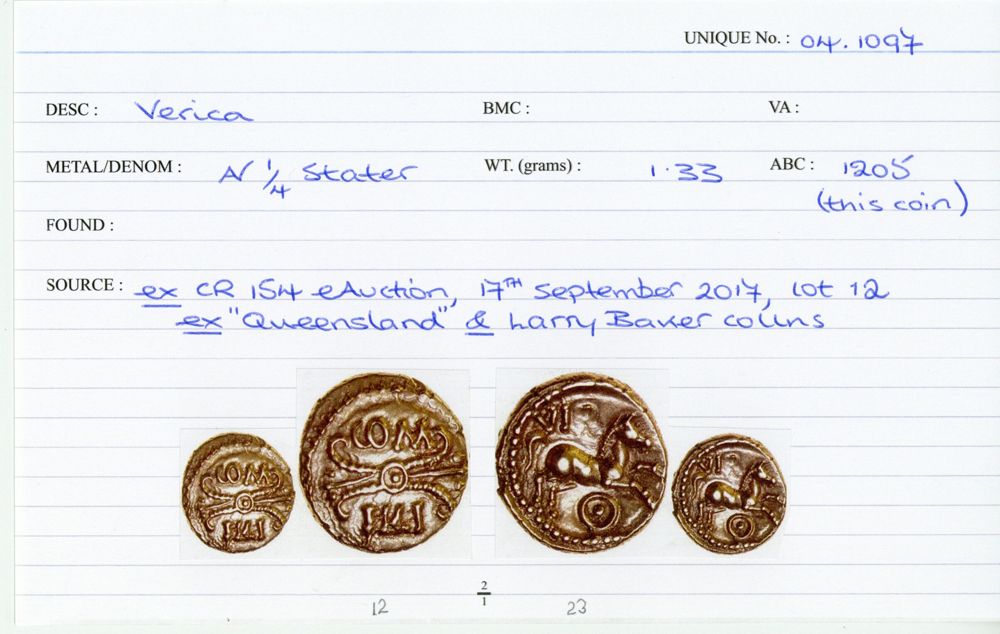 UNIQUE No. : 04.1097
DESC : Verica BMC : VA :
METAL/DENOM : AV 1/4 Stater WT. (grams) : 1.33 ABC : 1205
(this coin)
FOUND :
SOURCE : ex CR 154 eAuction, 17TH September 2017, lot 12
ex "Queensland" & Larry Baker colins
COMF COMF VI VI
FILI FILI
2/1
12 23